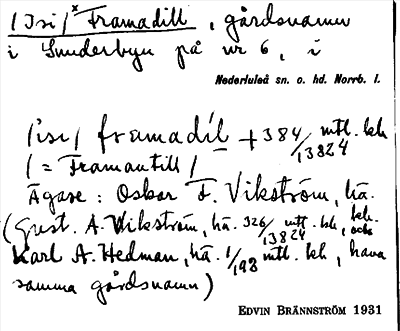 /Isi/ ˣFramadill, gårdsnamn
i Sunderbyn på nr 6, i
Nederluleå sn. o. hd. Norrb. l.
/isi/ framadíl + 384/13824 mtl. kh
/= Framantill/
Ägare: Oskar F. Vikström, hä.
(Gust. A. Wikström, hä. 326/13824 mtl. kh, och
Karl A. Hedman, hä. 1/198 mtl. kh, hava
samma gårdsnamn)
EDVIN BRÄNNSTRÖM 1931